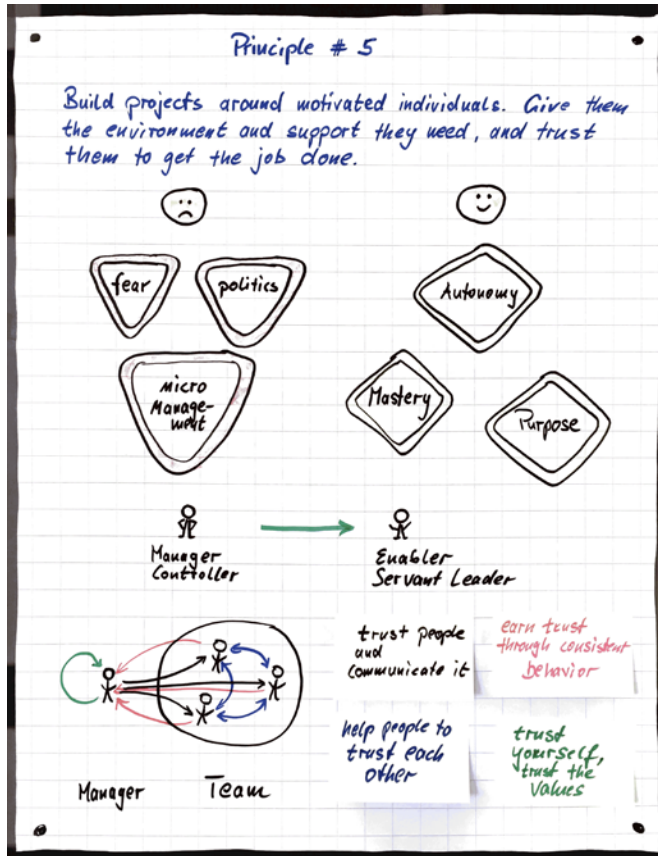 Principle # 5
Build projects around motivated individuals. Give them
the environment and support they need, and trust
them to get the job done.
fear
politics
micro
Manage-
ment
Autonomy
Mastery
Purpose
Manager
Controller
Enabler
Servant Leader
trust people
and
communicate it
earn trust
through consistent
behavior
help people to
trust each
other
trust
yourself,
trust the
values
Manager
Team